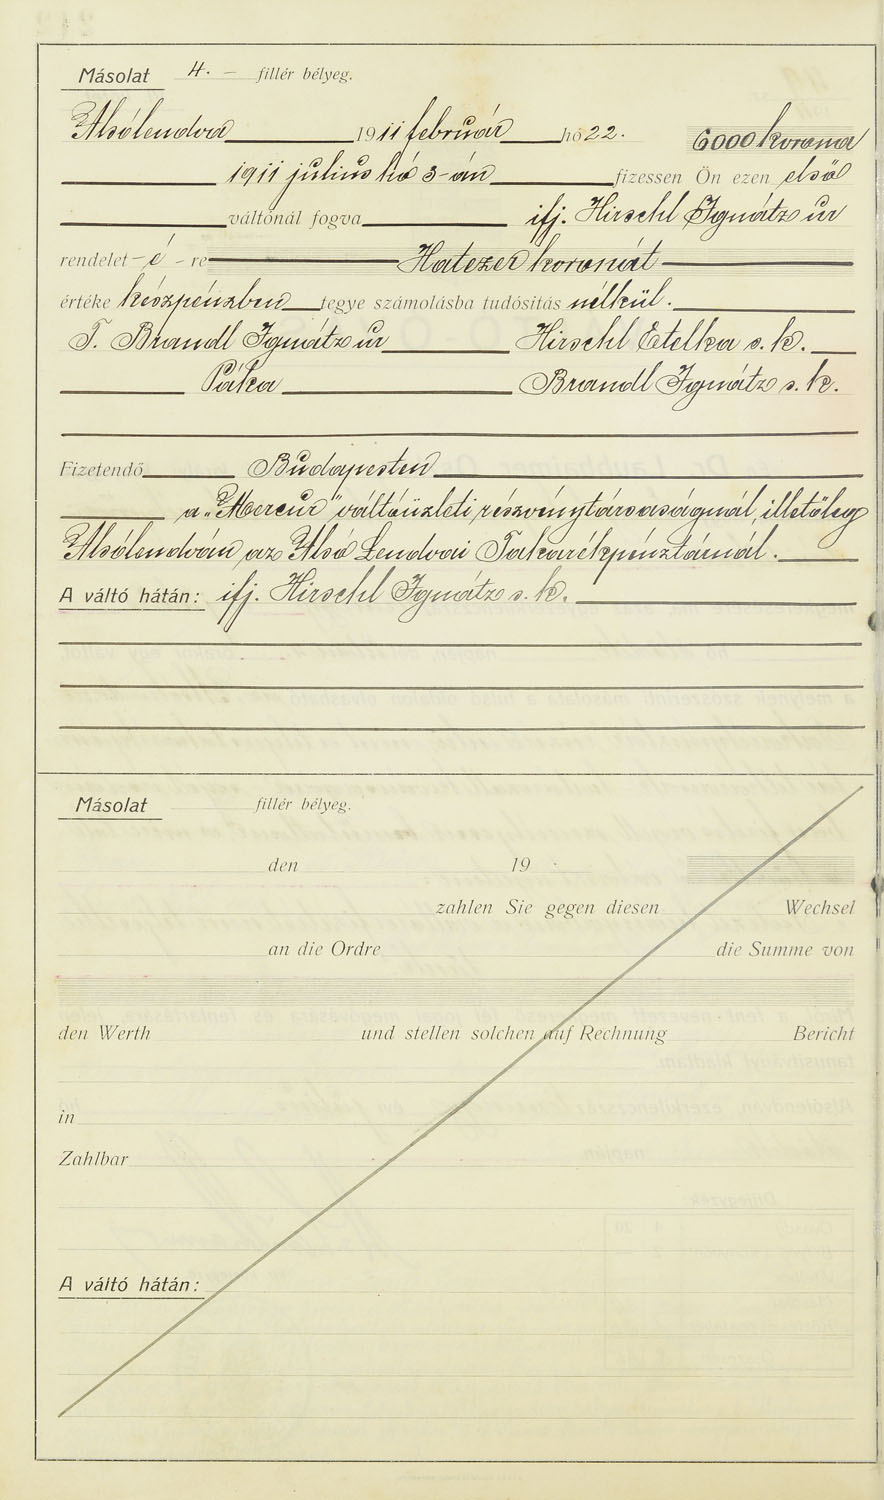 Másolat 4. – fillér bélyeg.
Alsólendva 1911 február hó 22. 6000 korona
1911 julius hó 3-án fizessen Ön ezen első
váltónál fogva ifj. Hirschl Ignátz úr
rendelet-é-re Hatezer koronát
értéke készpénzben tegye számolásba tudósítás nélkül.
T. Brandl Ignátz úr Hirschl Etelka s. k.
Páka Brandl Ignátz s. k.
Fizetendő Budapesten
a „Mercur" váltóüzleti részvénytársaságnál, illetőleg
Alsólendván az Alsó Lendvai Takarékpénztárnál.
A váltó hátán: ifj. Hirschl Ignátz s. k.
Másolat fillér bélyeg.
den 19
zahlen Sie gegen diesen Wechsel
an die Ordre die Summe von
den Werth und stellen solchen auf Rechnung Bericht
in
Zahlbar
A váltó hátán: